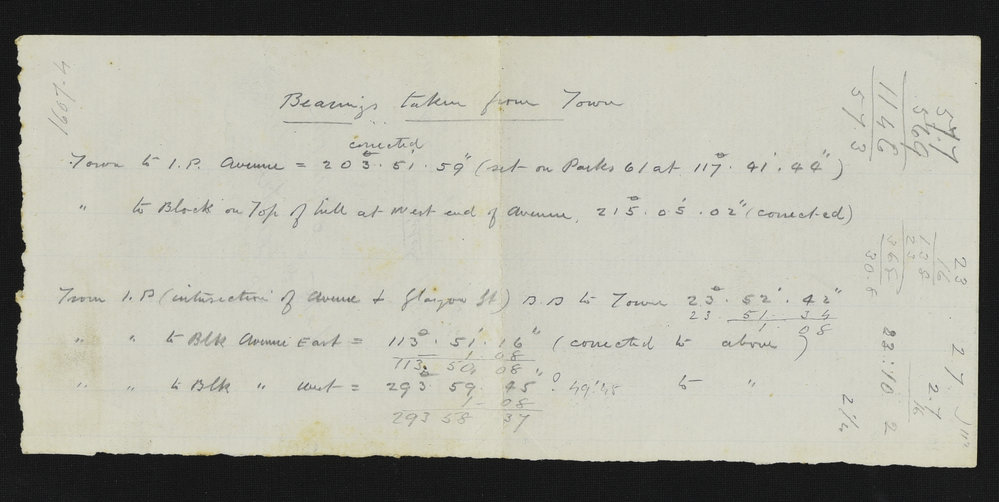 Bearings taken from Town
corrected
Town to I.P. Avenue = 203° . 51' . 59" (set on Parks 61 at 117° . 41' . 44")
" to Block on Top of hill at West end of Avenue, 215 . 05' . 02" (corrected)
From I.P (intersection of Avenue + Glasgow St) B.S to Town 23° . 52' . 42"
23 . 51 . 34
1 08
" " to Blk Avenue East = 113° . 51' . 16" (corrected to above)
1 . 08
113 . 50 . 08
" " to Blk " West = 293° 59' 45" ° 49' 45 to "
1 - 08
293 58 37
1607.4
577
569
1146
573
23
16
138
23
368
30.6
23:10 2
2 1/4
2.7
2.7